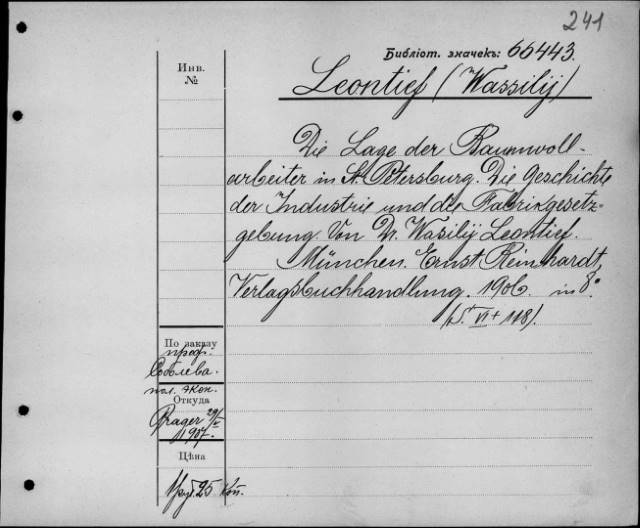 241
Библіот. значекъ: 66443.
Инв.
№
Leontief (Wassilij)
Die Lage der Baumwoll-
arbeiter in St. Petersburg. Die Geschichte
der Industrie und die Fabrikgesetz-
gebung. Von Dr. Wasilij Leontief.
München. Ernst Reinhardt,
Verlagsbuchhandlung. 1906. in 8°
(S. VI + 118).
По заказу
проф.
Соболева.
пол. экон.
Откуда
Prager 29/IV
1907.
Цѣна
1 руб. 25 коп.